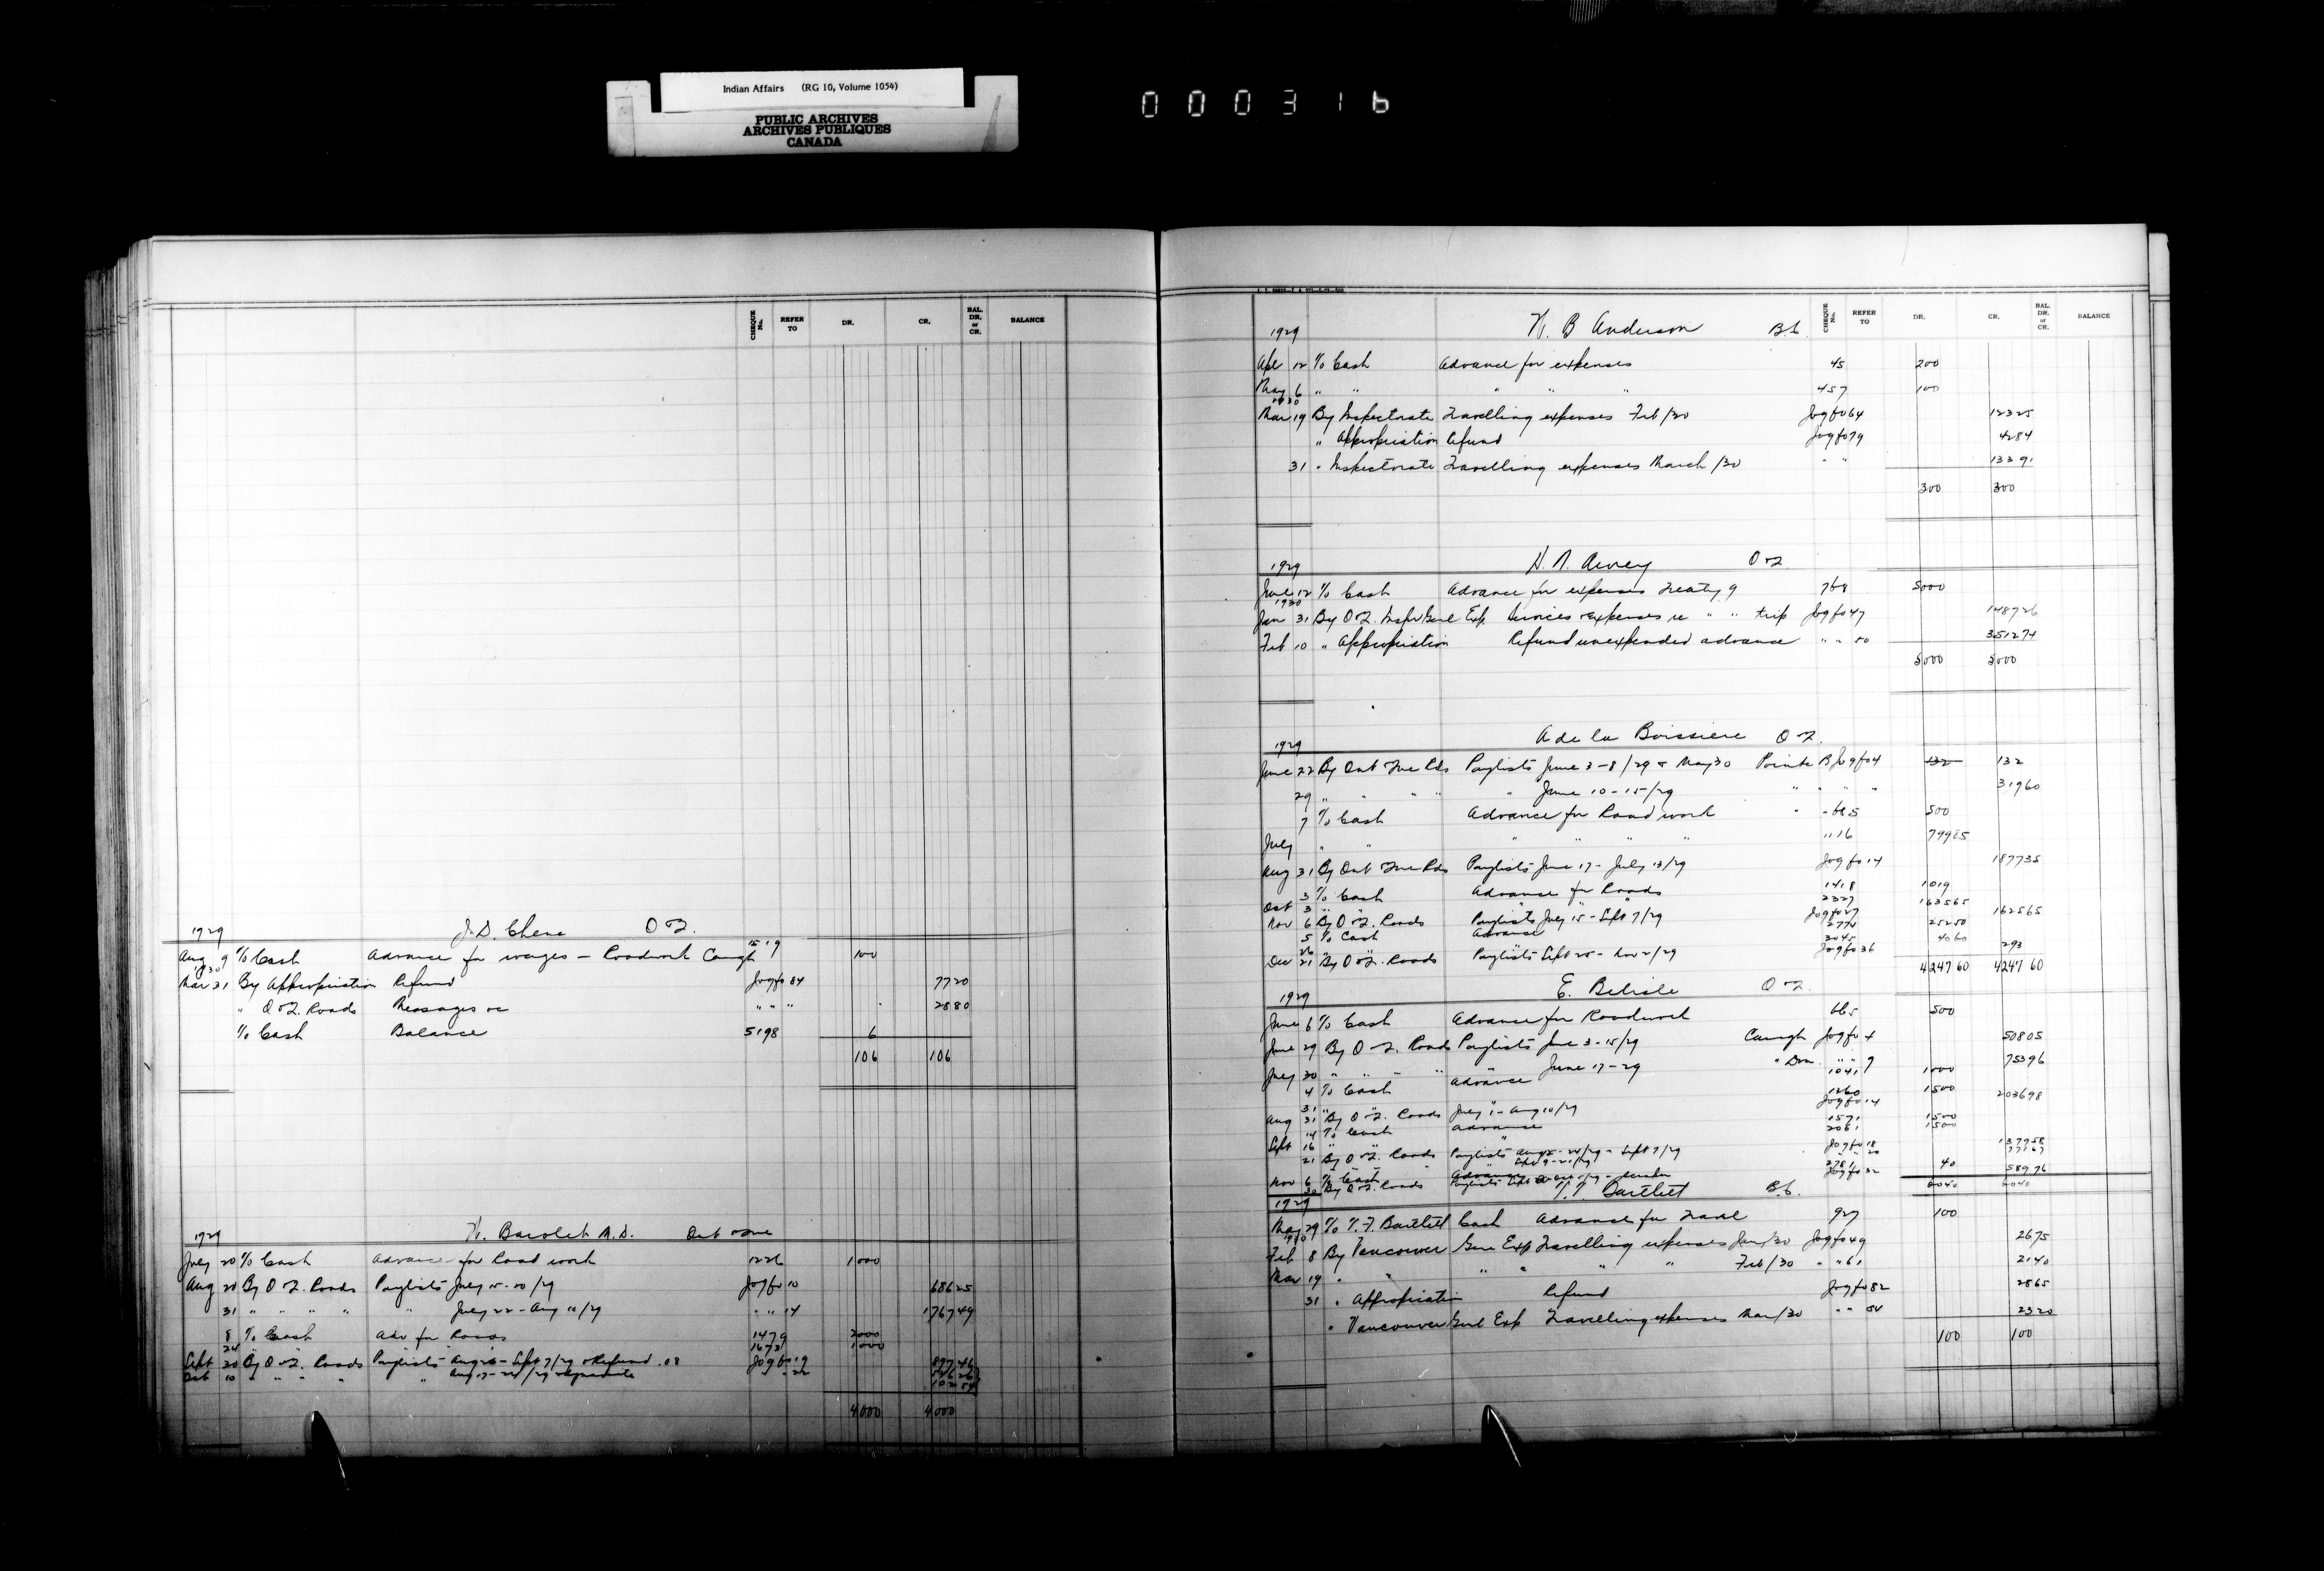 Indian Affairs (RG 10, Volume 1054)
PUBLIC ARCHIVES
ARCHIVES PUBLIQUES
CANADA
000316
CHEQUE No. REFER TO DR. CR. BAL. DR. or CR. BALANCE
1929 J.D. Chene O & Q.
Aug 9 To Cash Advance for wages — Roadwork Caugh 1519 100
1930
Mar 31 By Appropriation Refund Jog fo 84 7720
" O & Q. Roads Messages &c " " " 2880
To Cash Balance 5198 6
106 106
1929 Ont & Que
July 20 To Cash Advance for Road work 1226 1000
Aug 20 By O & Q. Roads Paylists July 15-20/29 Jog fo 10 68625
31 " " " " " July 22 - Aug 10/29 " " 14 176749
8 To Cash Adv for Roads 1479 2000
24 1673 1000
Sept 30 By O & Q. Roads Paylists Aug 26 - Sept 7/29 & Refund .08 Jog fo 19 89746
Oct 10 " " " " " Aug 17-24/29 " 22
4000 4000
CHEQUE No. REFER TO DR. CR. BAL. DR. or CR. BALANCE
1929 W. B Anderson B.C.
Apl 12 To Cash Advance for expenses 45 200
May 6 " " " " " 457 100
1930
Mar 19 By Inspectorate Travelling expenses Feb/30 Jog fo 64 12325
" Appropriation Refund Jog fo 79 4284
31 " Inspectorate Travelling expenses March/30 " " 13391
300 300
1929 H. N. Awrey O & Q.
June 12 To Cash Advance for expenses Treaty 9 768 5000
1930
Jan 31 By O & Q. Insp Genl Exp Services & expenses re " " trip Jog fo 47 148726
Feb 10 " Appropriation Refund unexpended advance " " 50 351274
5000 5000
1929 A de la Boissiere O & Q.
June 22 By Ont & Que Rds Paylists June 3-8/29 & May 30 Pointe B Jog fo 4 132 132
29 " " " " " June 10-15/29 " " " " 31960
7 To Cash Advance for Road work " 665 500
July " " " " " " "16 79985
Aug 31 By Ont & Que Rds Paylists June 17 - July 13/29 Jog fo 14 187735
3 To Cash Advance for Roads 1418 1019
Oct 3 " " " 2327 163565
Nov 6 By O & Q. Roads Paylists July 15 - Sept 7/29 Jog fo 27 162565
5 To Cash Advance 2774 25250
26 " " " 3045 4060
Dec 21 By O & Q. Roads Paylists Sept 25 - Nov 2/29 Jog fo 36 293
424760 424760
1929 E. Belisle O & Q.
June 6 To Cash Advance for Roadwork 665 500
June 29 By O & Q. Roads Paylists June 3-15/29 Caugh Jog fo 4 50805
July 30 " " " " " June 17-29 " Dom. " " 9 75396
4 To Cash Advance 1041 1000
31 " " " 1260 1500
Aug 31 By O & Q. Roads July 1 - Aug 10/29 Jog fo 14 203698
14 To Cash Advance 1571 1500
Sept 16 " " " 2061 1500
21 By O & Q. Roads Paylists Aug 12-24/29 - Sept 7/29 Jog fo 18 137958
" " 20 77167
Nov 6 To Cash Advance 2781 40
30 By O & Q. Roads Jog fo 32 58976
6040 6040
1929 Bartlett B.C.
May 29 To T. F. Bartlett Cash Advance for Travel 927 100
1930
Feb 8 By Vancouver Gen Exp Travelling expenses Jan/30 Jog fo 49 2675
Mar 19 " " " " " " Feb/30 " " 61 2140
31 " Appropriation Refund Jog fo 82 2865
" Vancouver Genl Exp Travelling expenses Mar/30 " " 84 2320
100 100